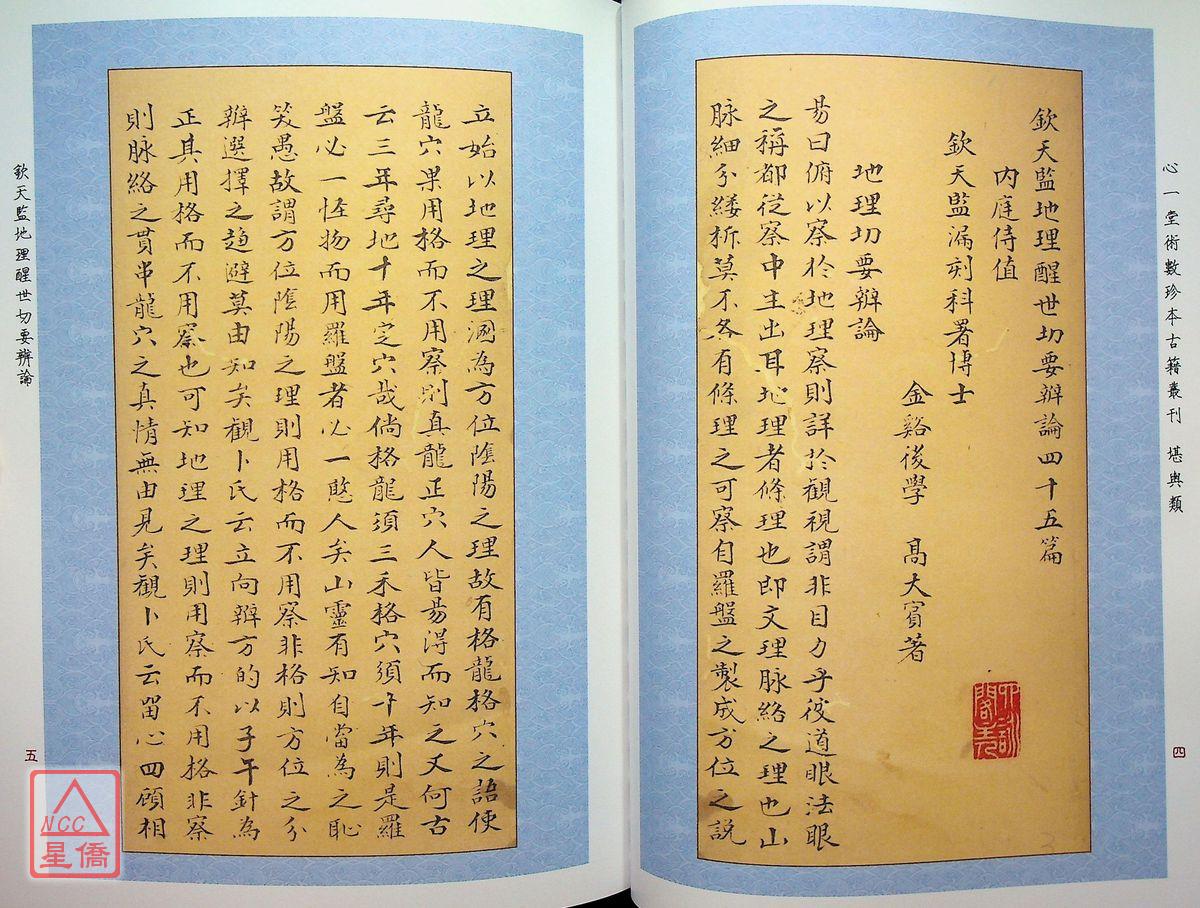 心一堂術數珍本古籍叢刊 堪輿類
四
欽天監地理醒世切要辯論四十五篇
內庭侍值
欽天監漏刻科署博士
金谿後學 高大賓著
地理切要辯論
易曰俯以察於地理察則詳於觀視謂非目力乎後道眼法眼
之稱都從察中主出耳地理者條理也即文理脉絡之理也山
脉細分縷析莫不各有條理之可察自羅盤之製成方位之說
立始以地理之理溷為方位陰陽之理故有格龍格穴之語使
龍穴果用格而不用察則真龍正穴人皆易得而知之又何古
云三年尋地十年定穴哉倘格龍須三禾格穴須十年則是羅
盤必一怪物而用羅盤者必一愍人矣山靈有知自當為之恥
笑愚故謂方位陰陽之理則用格而不用察非格則方位之分
辯選擇之趋避莫由知矣觀卜氏云立向辯方的以子午針為
正其用格而不用察也可知地理之理則用察而不用格非察
則脉絡之貫串龍穴之真情無由見矣觀卜氏云留心四顧相
欽天監地理醒世切要辨論
五
NCC
星僑